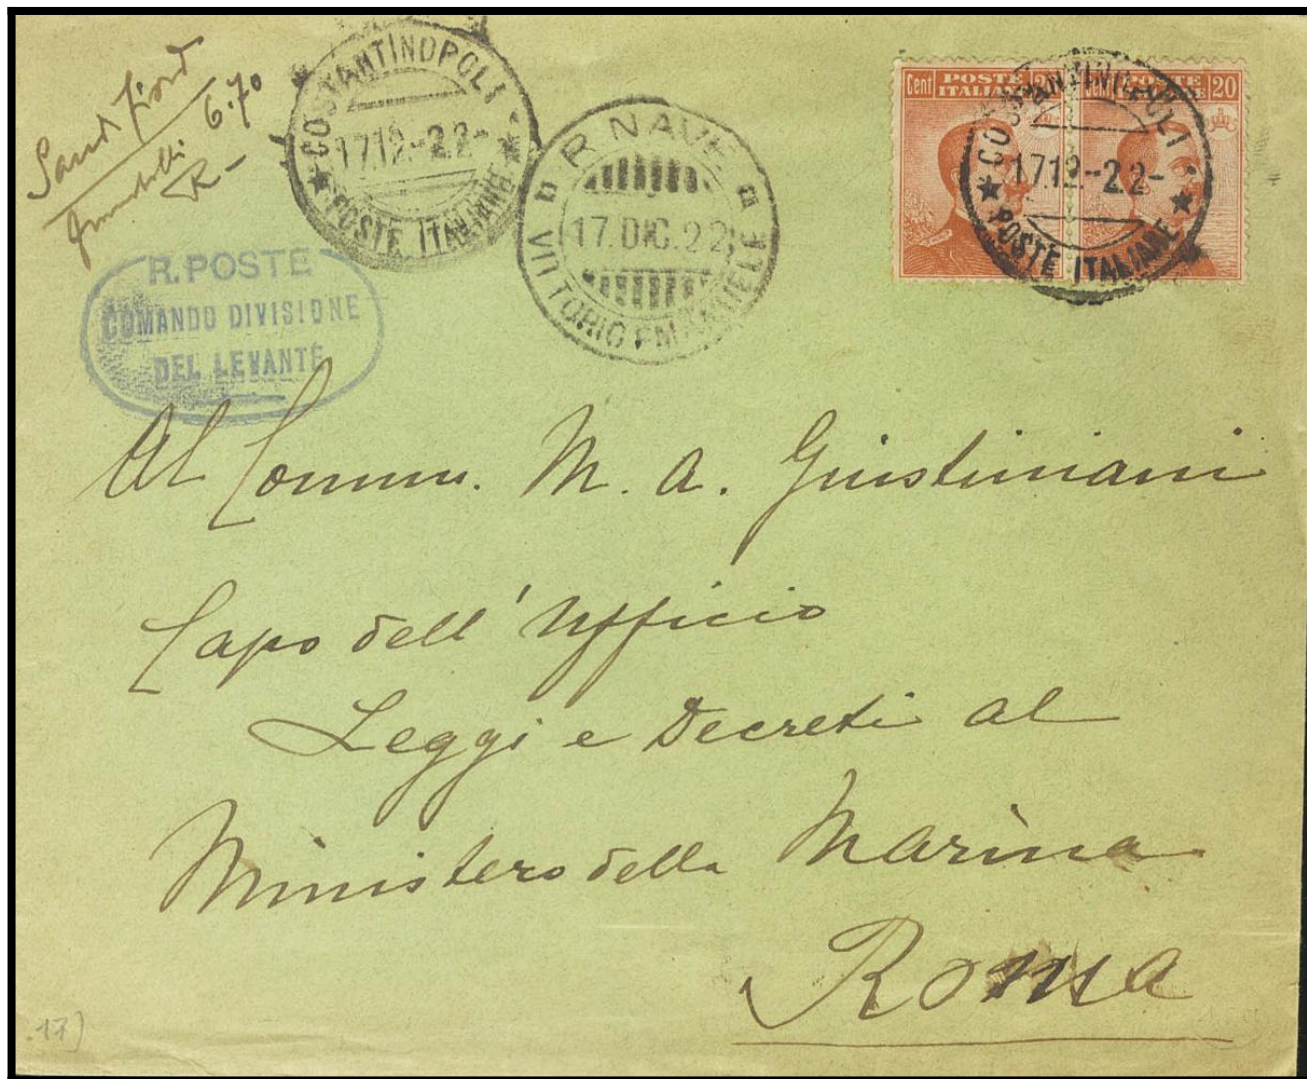 6.70
R-
COSTANTINOPOLI
17.12.-22-
★ POSTE ITALIANE ★
R. NAVE
17.DIC.22
VITTORIO EMANUELE
Cent POSTE 20
ITALIANE
Cent POSTE 20
ITALIANE
COSTANTINOPOLI
17.12.-22-
★ POSTE ITALIANE ★
R. POSTE
COMANDO DIVISIONE
DEL LEVANTE
Al Comm. M. A. Giustiniani
Capo dell'Ufficio
Leggi e Decreti al
Ministero della Marina
Roma
17)